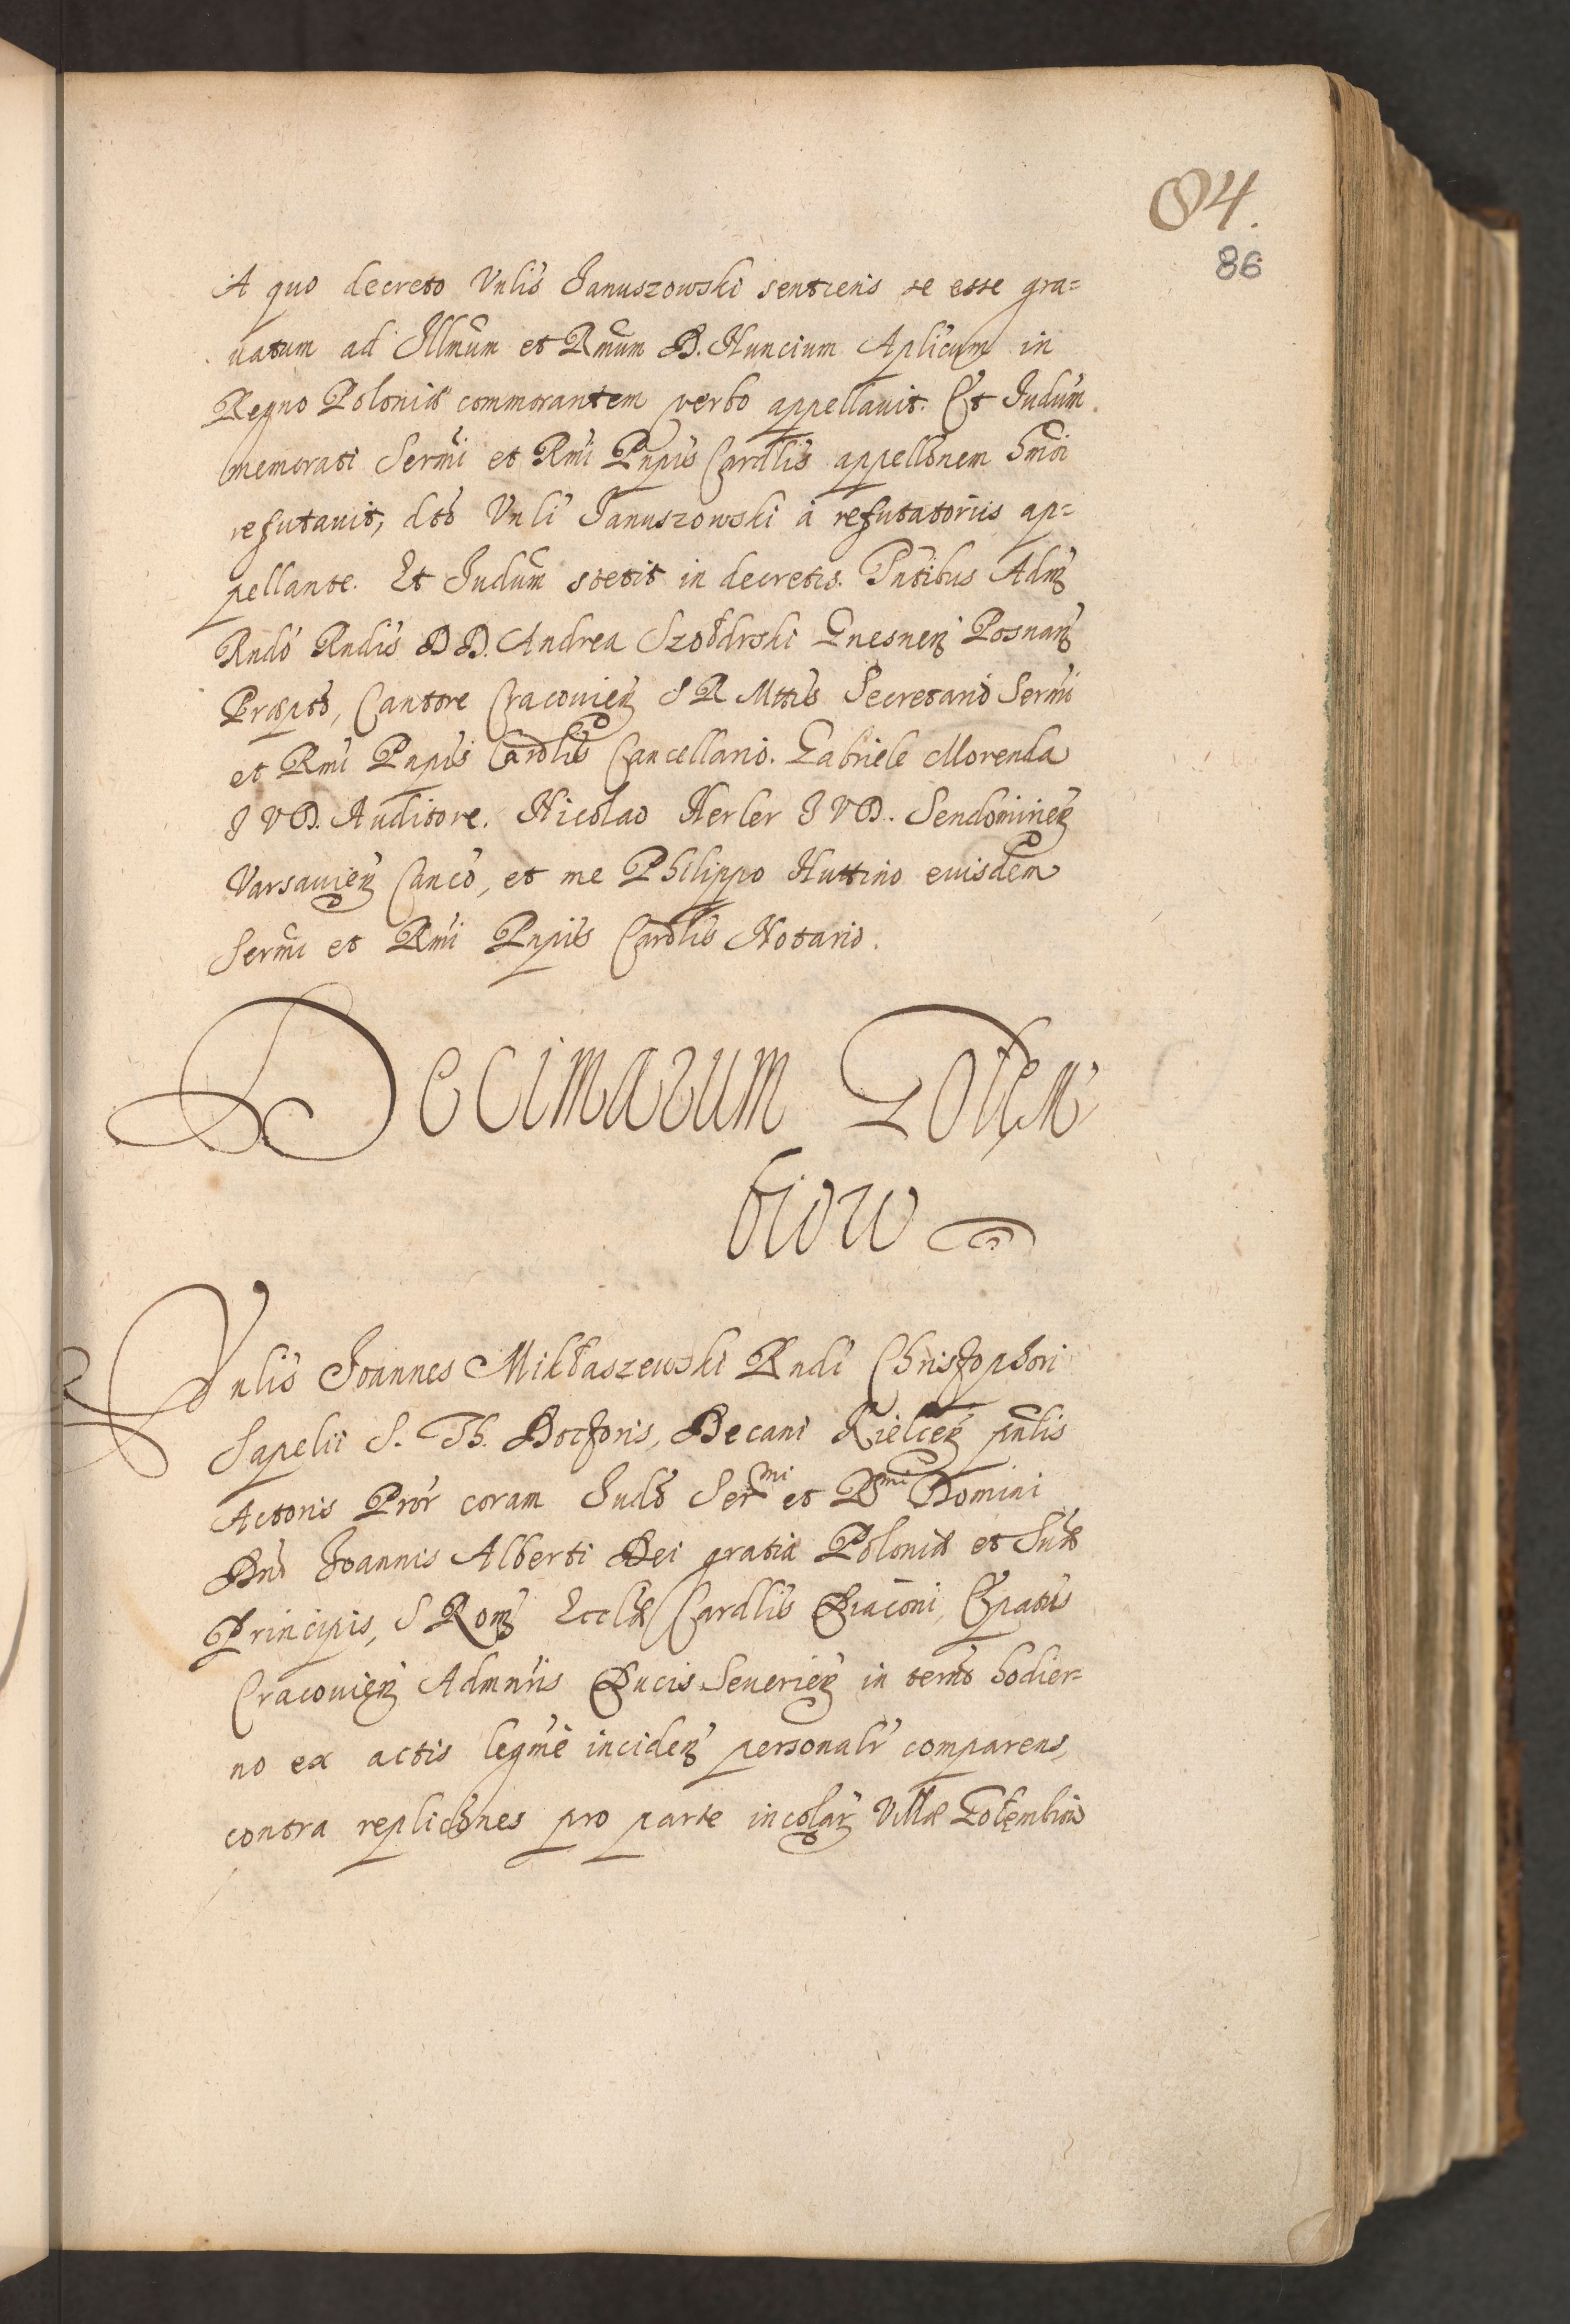 84.
86
A quo decreto Vnlis Januszowski sentiens se esse gra=
uatum ad Illmum et Rmum D. Nuncium Aplicum in
Regno Poloniæ commorantem verbo appellauit. Et Judum
memorati Sermi et Rmi Pnpis Cardlis appellonem hmoi
refutauit, dto Vnli Januszowski à refutatoriis ap=
pellante. Et Judum stetit in decretis. Pntibus Adm
Rndo Rndis DD. Andrea Szołdrski Gnesnen Posnan
Præpto, Cantore Cracouien S R Mttis Secretario Sermi
et Rmi Pnpis Cardlis Cancellario. Gabriele Morenda
J V D. Auditore. Nicolao Herler J V D. Sendomirien
Varsauien Canco, et me Philippo Huttino euisdem
Sermi et Rmi Pnpis Cardlis Notario.
Decimarum Gołem
biow
Vnlis Joannes Mikłaszewski Rndi Christophori
Sapelii S. Th. Doctoris, Decani Kielcen pnlis
Actoris Pror coram Judo Sermi et Rmi Domini
Dni Joannis Alberti Dei gratia Poloniæ et Suæ
Principis, S Rom Ecclæ Cardlis Diaconi, Epatus
Cracouien Admnris Ducis Seuerien in termo hodier=
no ex actis legme inciden personalr comparens,
contra replicones pro parte incolar Villæ Gołembiow